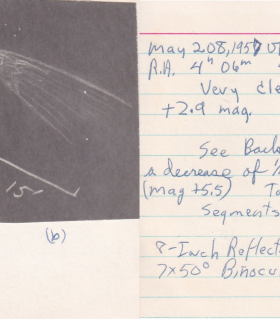 (b)
May 2.08, 1957 U
R.A. 4h 06m
Very cle
+2.9 mag.
See Back
a decrease of
(mag +5.5) To
Segments
8-Inch Reflect
7x50° Binocu